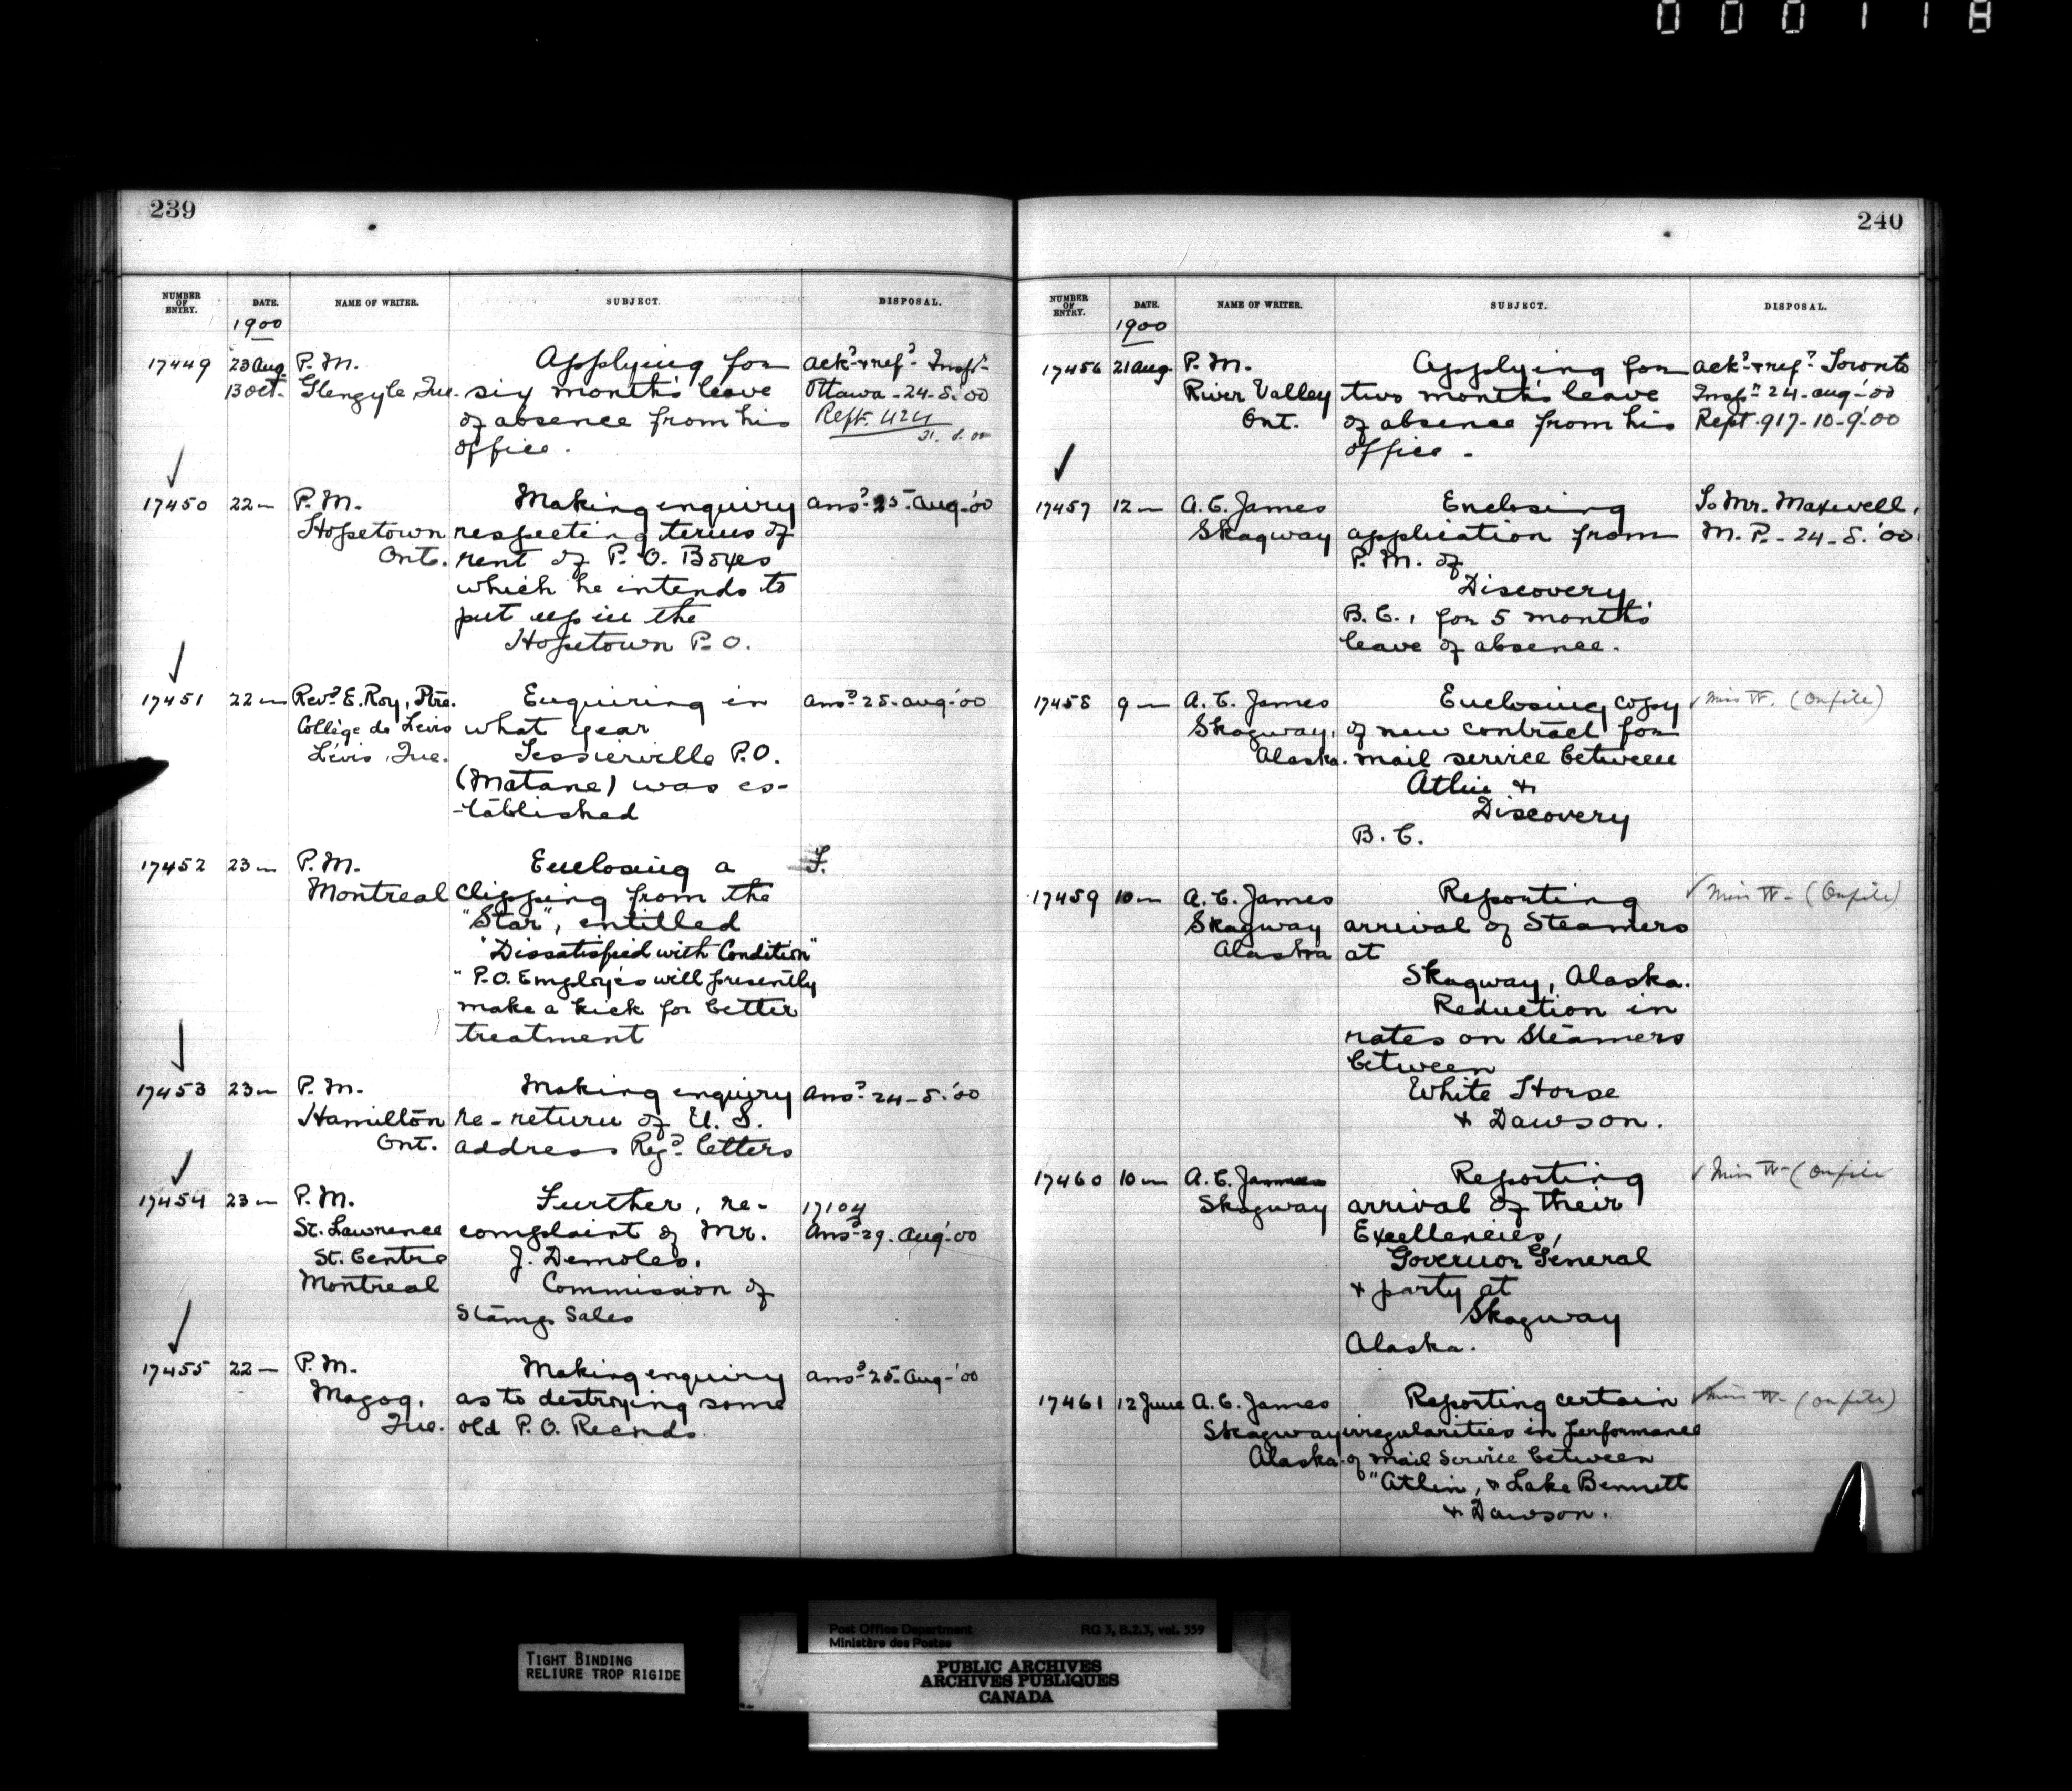 000118
239
NUMBER OF ENTRY. DATE. NAME OF WRITER. SUBJECT. DISPOSAL.
1900
17449 23 Aug. P. M. Applying for ack.d & ref.d Insp.r
13 Oct. Glengyle Que. six months leave Ottawa - 24-8-'00
of absence from his Rept. 424
office. 31. 8. 00
17450 22 " P. M. Making enquiry ans.d 25 Aug-'00
Hopetown respecting terms of
Ont. rent of P. O. Boxes
which he intends to
put up in the
Hopetown P. O.
17451 22 " Rev.d E. Roy, Ptre. Enquiring in ans.d 28. Aug-'00
Collège de Lévis what year
Lévis, Que. Tessierville P.O.
(Matane) was es-
-tablished
17452 23 " P. M. Enclosing a F.
Montreal clipping from the
"Star", entitled
"Dissatisfied with Condition"
"P.O. Employés will presently
make a kick for better
treatment
17453 23 " P. M. Making enquiry Ans.d 24-8-'00
Hamilton re-return of U. S.
Ont. address Reg.d letters
17454 23 " P. M. Further, re- 17104
St. Lawrence complaint of Mr. Ans.d 29. Aug-'00
St. Centre J. Demoles.
Montreal Commission of
Stamp Sales
17455 22 " P. M. Making enquiry ans.d 25. Aug-'00
Magog, as to destroying some
Que. old P. O. Records.
240
NUMBER OF ENTRY. DATE. NAME OF WRITER. SUBJECT. DISPOSAL.
1900
17456 21 Aug. P. M. Applying for ack.d & ref.d Toronto
River Valley two months leave Insp.r 24-Aug-'00
Ont. of absence from his Rept. 917-10-9-'00
office -
17457 12 " A. C. James Enclosing To Mr. Maxwell,
Skagway application from M. P. - 24-8-'00.
P. M. of
Discovery
B. C., for 5 months'
leave of absence.
17458 9 " A. C. James Enclosing copy (On file)
Skagway, of new contract for
Alaska. mail service between
Atlin &
Discovery
B. C.
17459 10 " A. C. James Reporting (On file)
Skagway arrival of Steamers
Alaska at
Skagway, Alaska.
Reduction in
rates on Steamers
between
White Horse
& Dawson.
17460 10 " A. C. James Reporting (On file
Skagway arrival of their
Excellencies,
Governor General
& party at
Skagway
Alaska.
17461 12 June A. C. James Reporting certain (On file)
Skagway irregularities in performance
Alaska. of mail Service between
"Atlin, & Lake Bennett
& Dawson.
Post Office Department RG 3, B.2.3, vol. 559
Ministère des Postes
TIGHT BINDING
RELIURE TROP RIGIDE
PUBLIC ARCHIVES
ARCHIVES PUBLIQUES
CANADA